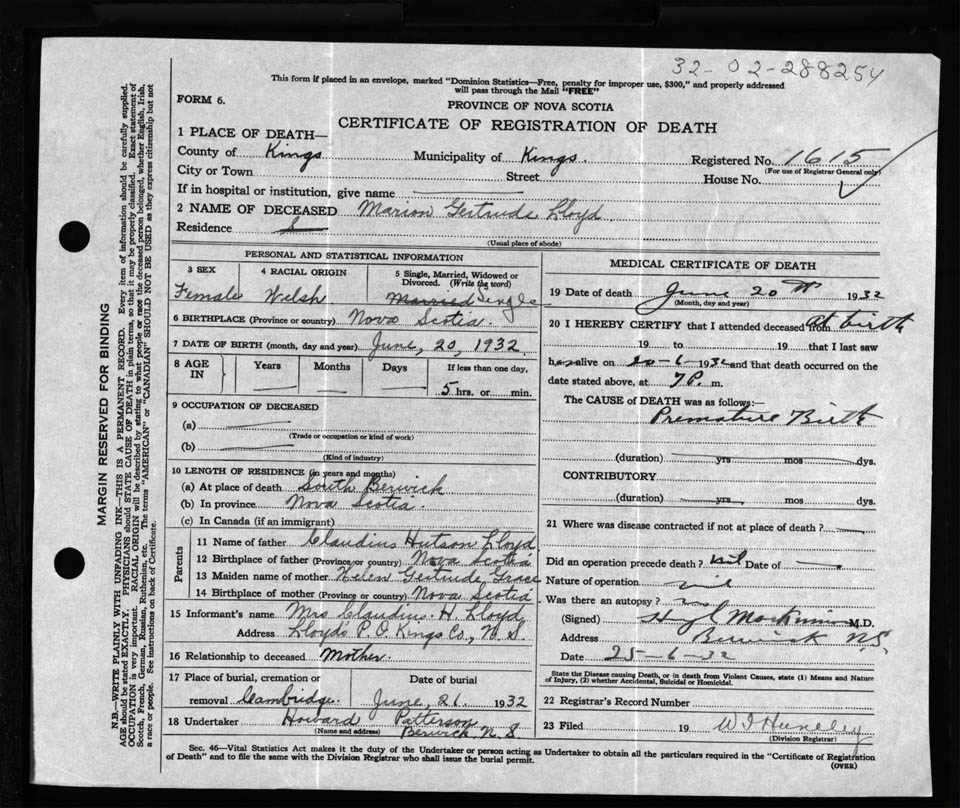 32-02-288254
This form if placed in an envelope, marked "Dominion Statistics—Free, penalty for improper use, $300," and properly addressed
will pass through the Mail "FREE"
FORM 6.
PROVINCE OF NOVA SCOTIA
CERTIFICATE OF REGISTRATION OF DEATH
1 PLACE OF DEATH—
County of Kings Municipality of Kings. Registered No. 1615
(For use of Registrar General only)
City or Town Street House No.
If in hospital or institution, give name
2 NAME OF DECEASED Marion Gertrude Lloyd
Residence
(Usual place of abode)
PERSONAL AND STATISTICAL INFORMATION
3 SEX 4 RACIAL ORIGIN 5 Single, Married, Widowed or
Divorced. (Write the word)
Female Welsh Married Single
6 BIRTHPLACE (Province or country) Nova Scotia.
7 DATE OF BIRTH (month, day and year) June, 20, 1932
8 AGE IN Years Months Days If less than one day,
5 hrs. or min.
9 OCCUPATION OF DECEASED
(a)
(Trade or occupation or kind of work)
(b)
(Kind of industry)
10 LENGTH OF RESIDENCE (in years and months)
(a) At place of death South Berwick
(b) In province Nova Scotia.
(c) In Canada (if an immigrant)
Parents
11 Name of father Claudius Hutson Lloyd
12 Birthplace of father (Province or country) Nova Scotia
13 Maiden name of mother Helen Gertrude Grace
14 Birthplace of mother (Province or country) Nova Scotia
15 Informant's name Mrs Claudius H. Lloyd
Address Lloyds P.O. Kings Co., N. S.
16 Relationship to deceased Mother.
17 Place of burial, cremation or Date of burial
removal Cambridge. June, 21. 1932
18 Undertaker Howard Patterson
(Name and address) Berwick, N. S
MEDICAL CERTIFICATE OF DEATH
19 Date of death June 20th 1932
(Month, day and year)
20 I HEREBY CERTIFY that I attended deceased from at birth
19 to 19 that I last saw
her alive on 20-6-1932 and that death occurred on the
date stated above, at 7 P. m.
The CAUSE of DEATH was as follows:—
Premature Birth
(duration) yrs mos dys.
CONTRIBUTORY
(duration) yrs mos dys.
21 Where was disease contracted if not at place of death?
Did an operation precede death? nil Date of
Nature of operation nil
Was there an autopsy?
(Signed) M.D.
Address Berwick N.S.
Date 25-6-32
State the Disease causing Death, or in death from Violent Causes, state (1) Means and Nature
of Injury, (2) whether Accidental, Suicidal or Homicidal.
22 Registrar's Record Number
23 Filed 19
(Division Registrar)
Sec. 46—Vital Statistics Act makes it the duty of the Undertaker or person acting as Undertaker to obtain all the particulars required in the "Certificate of Registration
of Death" and to file the same with the Division Registrar who shall issue the burial permit.
(OVER)
MARGIN RESERVED FOR BINDING
N.B.—WRITE PLAINLY WITH UNFADING INK—THIS IS A PERMANENT RECORD. Every item of information should be carefully supplied.
AGE should be stated EXACTLY. PHYSICIANS should STATE CAUSE OF DEATH in plain terms, so that it may be properly classified. Exact statement of
OCCUPATION is very important. RACIAL ORIGIN will be described by stating to what people or race the deceased person belonged, whether English, Irish,
Scotch, French, German, Russian, Ruthenian, etc. The terms "AMERICAN" or "CANADIAN" SHOULD NOT BE USED as they express citizenship but not
a race or people. See instructions on back of Certificate.